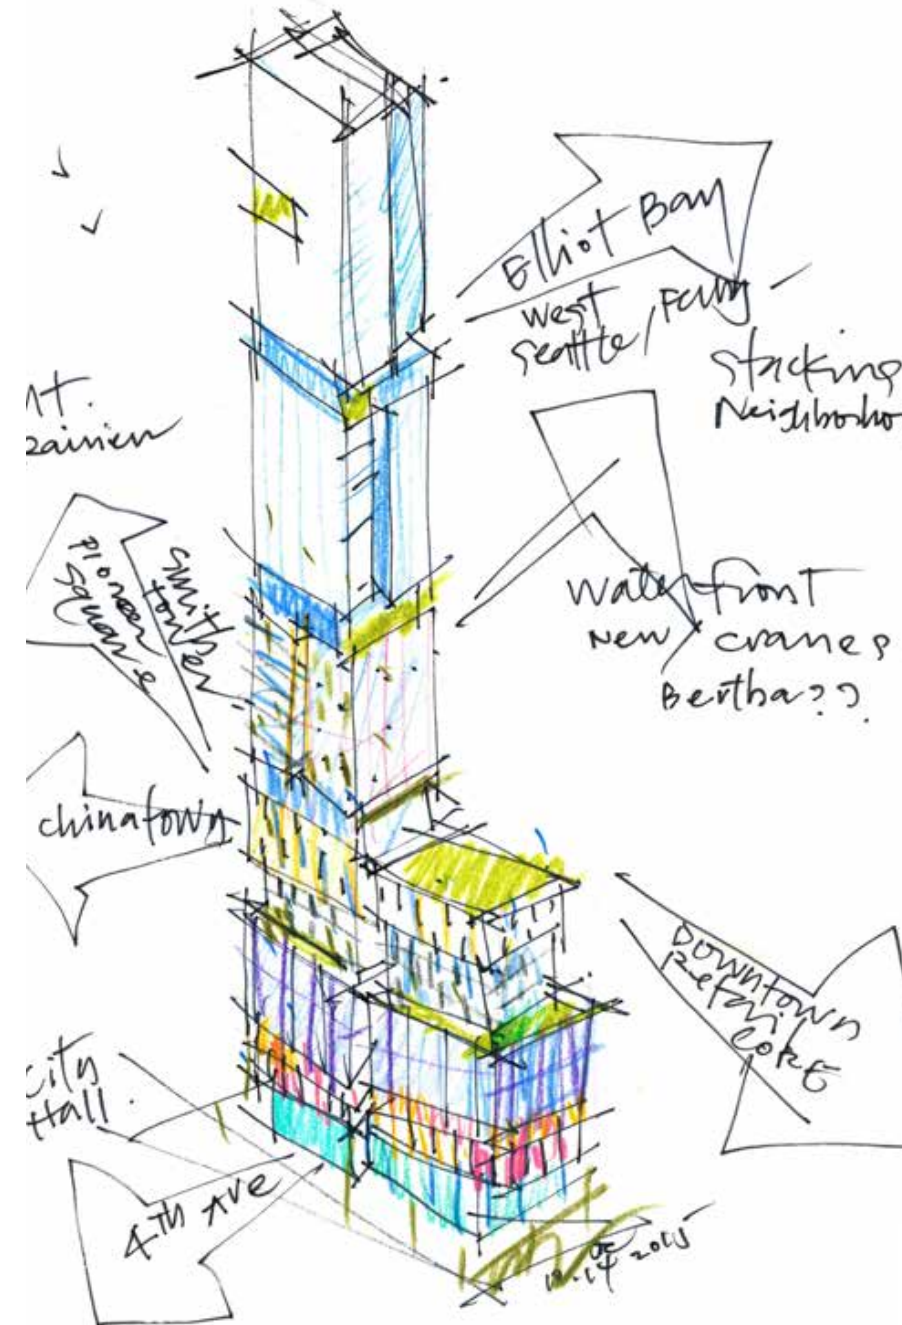 Elliot Bay
West
Seattle, Ferry
stacking
Neighborho
nt.
Rainier
Pioneer
Square
Smith
Tower
Waterfront
New cranes
Bertha??
chinatown
Downtown
Retail
CORE
City
Hall.
4th Ave
2015